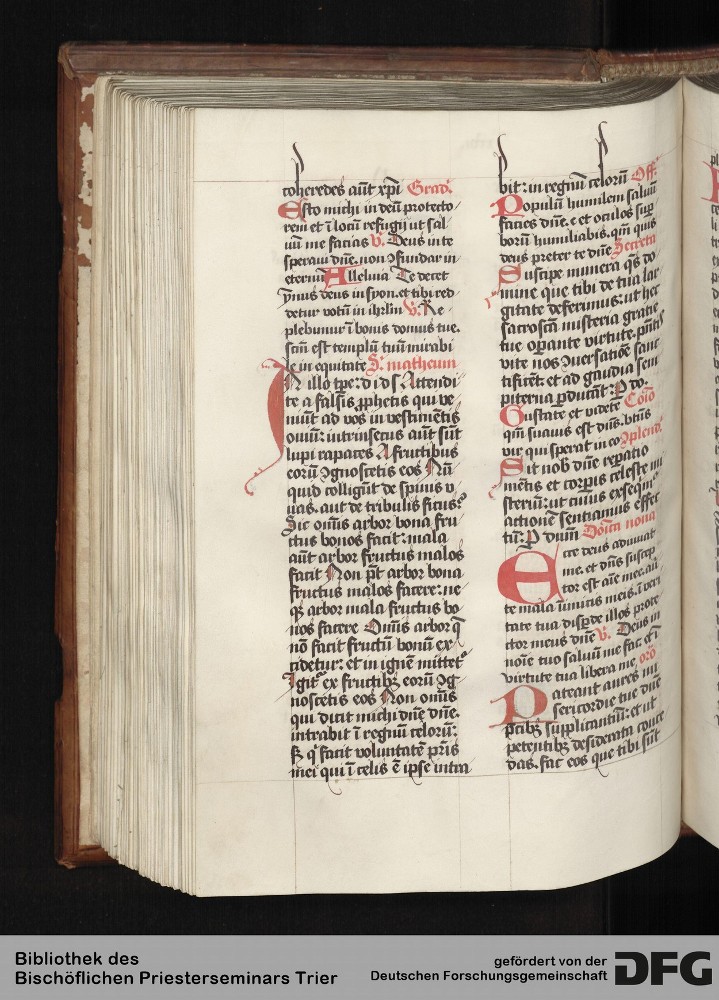 coheredes aūt xp̄i Grad᷑.
Esto michi in deū protecto
rem et ī locū refugij ut sal
uū me facias v̄. Deus in te
speraui dn̄e. non ꝯfundar in
eternū Alleluia Te decet
ymnus deus in syon. et tibi red
detur votū in ihrl̄m v̄. Re
plebimur ī bonis domus tue.
scm̄ est templū tuū mirabi
le in equitate S. matheum
In illo tp̄e: d i d s Attendi
te a falsis ꝓphetis qui ve
niūt ad vos in vestimētis
ouiū: intrinsecus aūt sūt
lupi rapaces A fructibus
eorū ꝯgnoscetis eos Nū
quid colligūt de spinis v
uas. aut de tribulis ficus?
Sic om̄is arbor bona fru
ctus bonos facit: mala
aūt arbor fructus malos
facit Non pōt arbor bona
fructus malos facere: ne
qꝫ arbor mala fructus bo
nos facere Om̄is arbor q̄
nō facit fructū bonū ex
cidetur: et in ignē mittet᷑
Igit᷑ ex fructibꝫ eorū ꝯg
noscetis eos Non om̄is
qui dicit michi dn̄e dn̄e.
intrabit ī regnū celorū:
sꝫ qͥ facit voluntatē pr̄is
mei qui ī celis ē ipse intra
bit: in regnū celorū Off᷑.
Populū humilem saluū
facies dn̄e. et oculos suꝑ
borū humiliabis. qm̄ quis
deus preter te dn̄e Secreta
Suscipe munera qs̄ do
mine que tibi de tua lar
gitate deferimus: ut hec
sacroscā misteria gratie
tue oꝑante virtute. p̄ntis
vite nos ꝯuersatiōe sanc
tificēt et ad gaudia sem
piterna ꝑducāt: P do.
Gustate et videte Cōīo
qm̄ suauis est dn̄s. btūs
vir qui sperat in eo ꝯplend᷑.
Sit nob̄ dn̄e reꝑatio
mētis et corꝑis celeste mi
steriū: ut cuius exseqim᷑
actionē sentiamus effec
tū: P dnum Dōīca nona
Ecce deus adiuuat
me. et dn̄s suscep
tor est aīe mee. auer
te mala inimicis meis. ī veri
tate tua disꝑde illos prote
ctor meus dn̄e v̄. Deus in
noīe tuo saluū me fac: et ī
virtute tua libera me orō
Pateant aures mi
sericordie tue dn̄e
p̄cibꝫ supplicantiū: et ut
petentibꝫ desiderata conce
das. fac eos que tibi sūt
Bibliothek des
Bischöflichen Priesterseminars Trier
gefördert von der
Deutschen Forschungsgemeinschaft
DFG